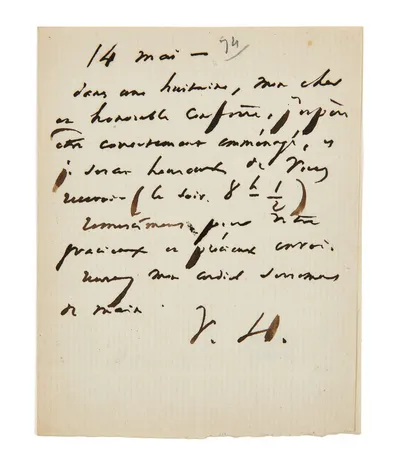 14 mai — 74
dans une huitaine, mon cher
et honorable confrère, j'espère
être convenablement emménagé, et
je serai heureux de vous
recevoir (le soir. 8 h ½)
Remerciements pour votre
gracieux et précieux envoi.
Recevez mon cordial serrement
de main.
V. H.